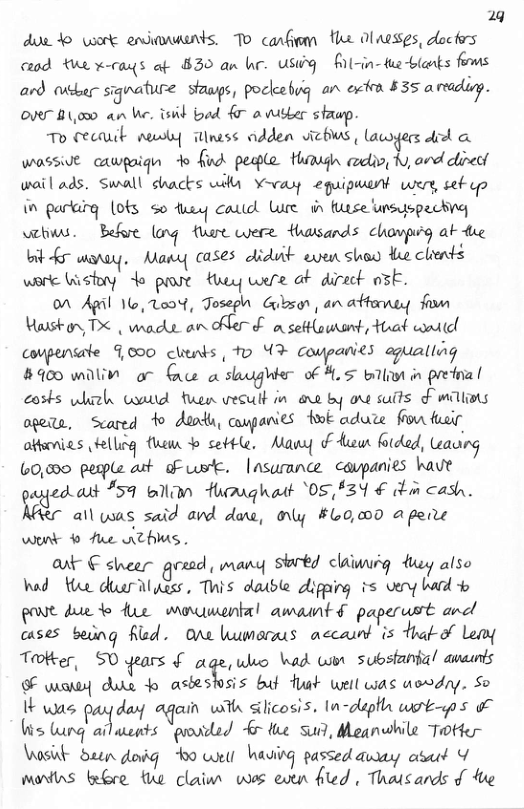 29
due to work environments. To confirm the illnesses, doctors
read the x-rays at $30 an hr. using fill-in-the-blanks forms
and rubber signature stamps, pocketing an extra $35 a reading.
Over $1,000 an hr. isn't bad for a rubber stamp.
To recruit newly illness ridden victims, lawyers did a
massive campaign to find people through radio, tv, and direct
mail ads. Small shacts with x-ray equipment were set up
in parking lots so they could lure in these unsuspecting
victims. Before long there were thousands chomping at the
bit for money. Many cases didn't even show the client's
work history to prove they were at direct risk.
On April 16, 2004, Joseph Gibson, an attorney from
Houston, TX, made an offer of a settlement, that would
compensate 9,000 clients, to 47 companies equalling
$900 million or face a slaughter of $4.5 billion in pretrial
costs which would then result in one by one suits of millions
apeize. Scared to death, companies took advize from their
attornies, telling them to settle. Many of them folded, leaving
60,000 people out of work. Insurance companies have
payed out $59 billion throughout '05, $34 of it in cash.
After all was said and done, only $60,000 apeize
went to the victims.
Out of sheer greed, many started claiming they also
had the other illness. This double dipping is very hard to
prove due to the monumental amount of paperwork and
cases being filed. One humorous account is that of Leroy
Trotter, 50 years of age, who had won substantial amounts
of money due to asbestosis but that well was now dry. So
it was payday again with silicosis. In-depth work-ups of
his lung ailments provided for the suit. Meanwhile Trotter
hasn't been doing too well having passed away about 4
months before the claim was even filed. Thousands of the